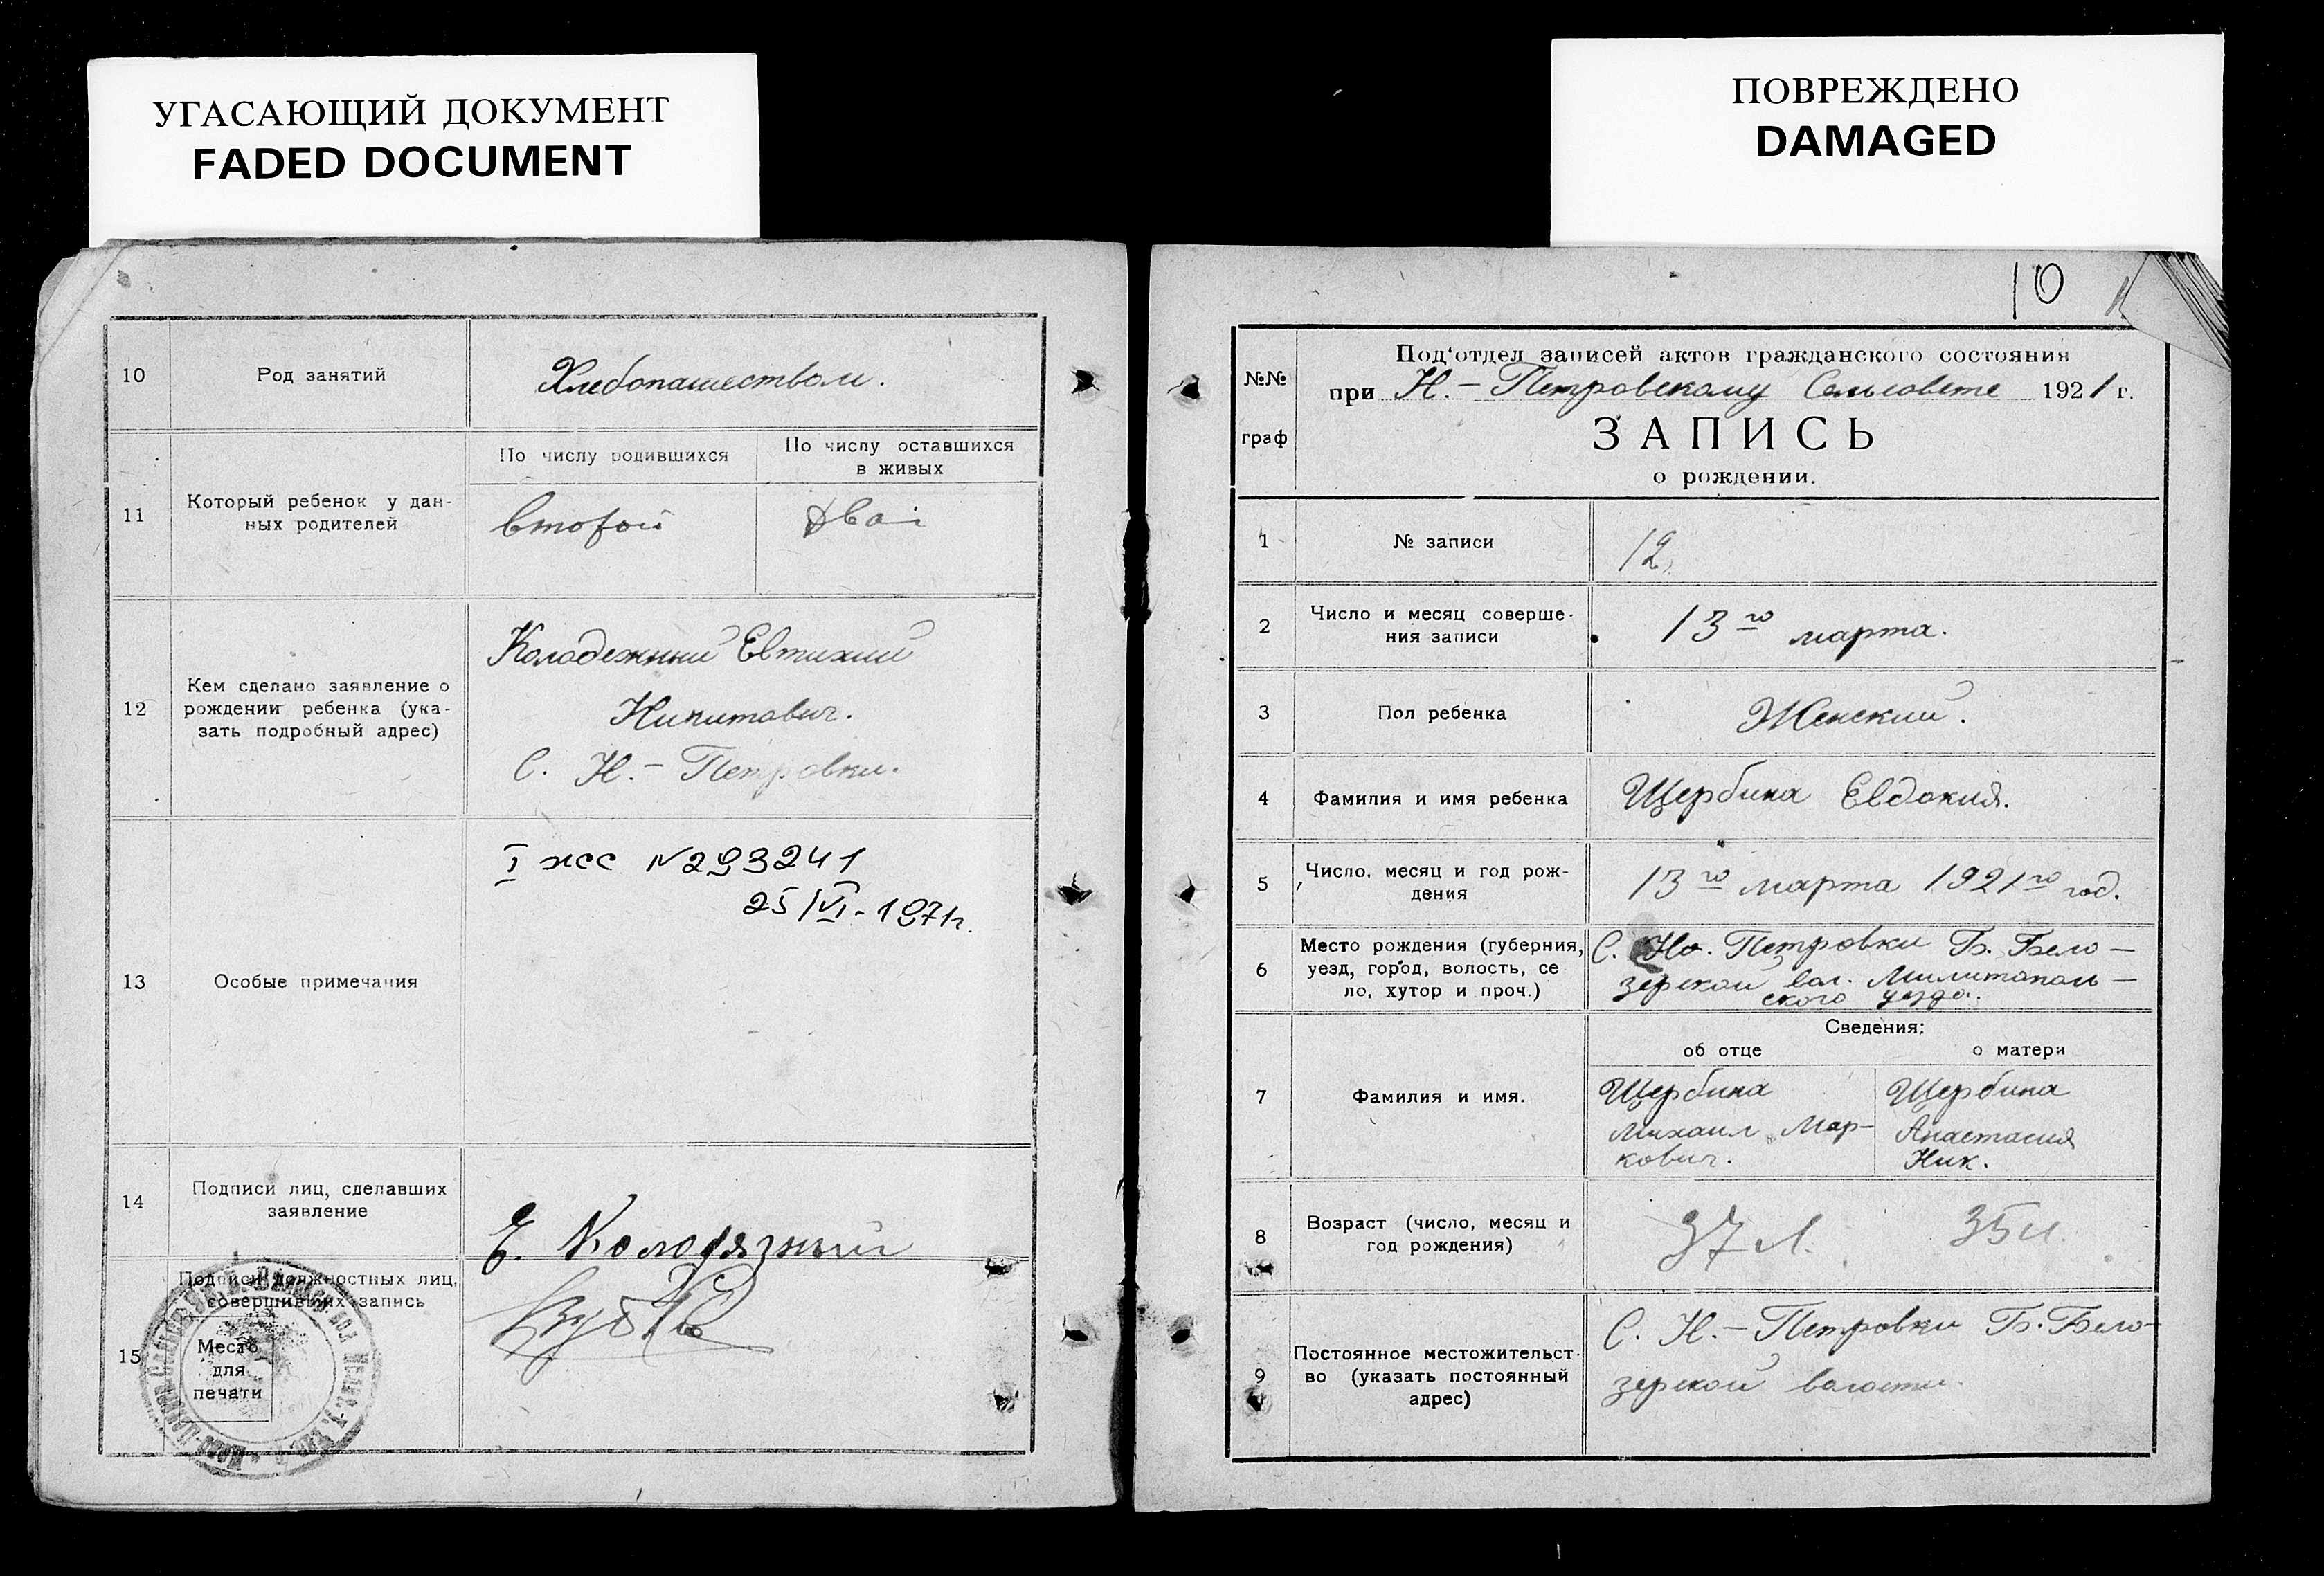 УГАСАЮЩИЙ ДОКУМЕНТ
FADED DOCUMENT
ПОВРЕЖДЕНО
DAMAGED
10
Род занятий
Хлебопашеством.
11
Который ребенок у дан-
ных родителей
По числу родившихся
По числу оставшихся
в живых
второй
двоі
12
Кем сделано заявление о
рождении ребенка (ука-
зать подробный адрес)
Колодежный Евтихий
Никитович.
С. Н.- Петровки.
13
Особые примечания
I жсс N293241
25/VI-1971г.
14
Подписи лиц, сделавших
заявление
Е. Колодязный
15
Подписи должностных лиц,
совершивших запись
Место
для
печати
10
№№
граф
Под‘отдел записей актов гражданского состояния
при Н.- Петровскому Сельсовете 1921 г.
ЗАПИСЬ
о рождении.
1
№ записи
12
2
Число и месяц соверше-
ния записи
13го марта.
3
Пол ребенка
Женский.
4
Фамилия и имя ребенка
Щербина Евдокия.
5
Число, месяц и год рож-
дения
13го марта 1921го год.
6
Место рождения (губерния,
уезд, город, волость, се
ло, хутор и проч.)
С. Но. Петровки Б. Бело-
зерской вол. Милитополь-
ского уезда.
Сведения:
об отце
о матери
7
Фамилия и имя.
Щербина
Михаил Мар-
кович.
Щербина
Анастасия
Ник.
8
Возраст (число, месяц и
год рождения)
37 л.
35 л.
9
Постоянное местожительст-
во (указать постоянный
адрес)
С. Н.- Петровки Б. Бело-
зерской волости.